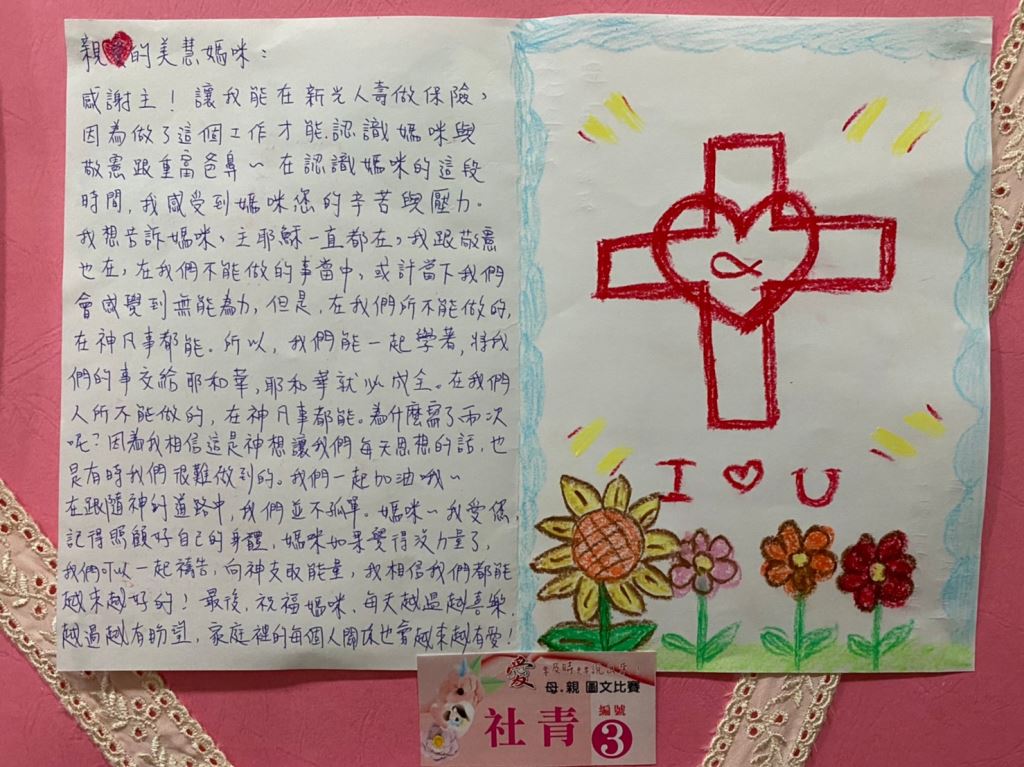 親愛的美慧媽咪：
感謝主！讓我能在新光人壽做保險，
因為做了這個工作才能認識媽咪與
敬憲跟重富爸鼻～在認識媽咪的這段
時間，我感受到媽咪您的辛苦與壓力。
我想告訴媽咪，主耶穌一直都在，我跟敬憲
也在，在我們不能做的事當中，或許當下我們
會感覺到無能為力，但是，在我們所不能做的，
在神凡事都能。所以，我們能一起學著，將我
們的事交給耶和華，耶和華就以成全。在我們
人所不能做的，在神凡事都能。為什麼寫了兩次
呢？因為我相信這是神想讓我們每天思想的話，也
是有時我們很難做到的。我們一起加油哦～
在跟隨神的道路中，我們並不孤單。媽咪～我愛您，
記得照顧好自己的身體，媽咪如果覺得沒力量了，
我們可以一起禱告，向神支取能量，我相信我們都能
越來越好的！最後，祝福媽咪，每天越過越喜樂，
越過越有盼望，家庭裡的每個人關係也會越來越有愛！
I U
愛
母.親 圖文比賽
社青
編號
3